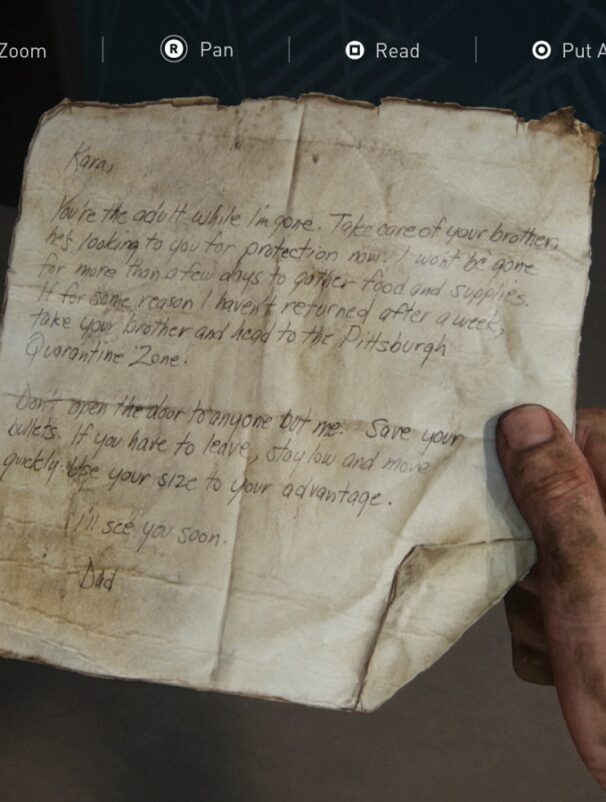 Zoom
Pan
Read
Put A
Kara,
You're the adult while I'm gone. Take care of your brother,
he's looking to you for protection now. I won't be gone
for more than a few days to gather food and supplies.
If for some reason I haven't returned after a week,
take your brother and head to the Pittsburgh
Quarantine Zone.
Don't open the door to anyone but me. Save your
bullets. If you have to leave, stay low and move
quickly. Use your size to your advantage.
I'll see you soon.
-Dad